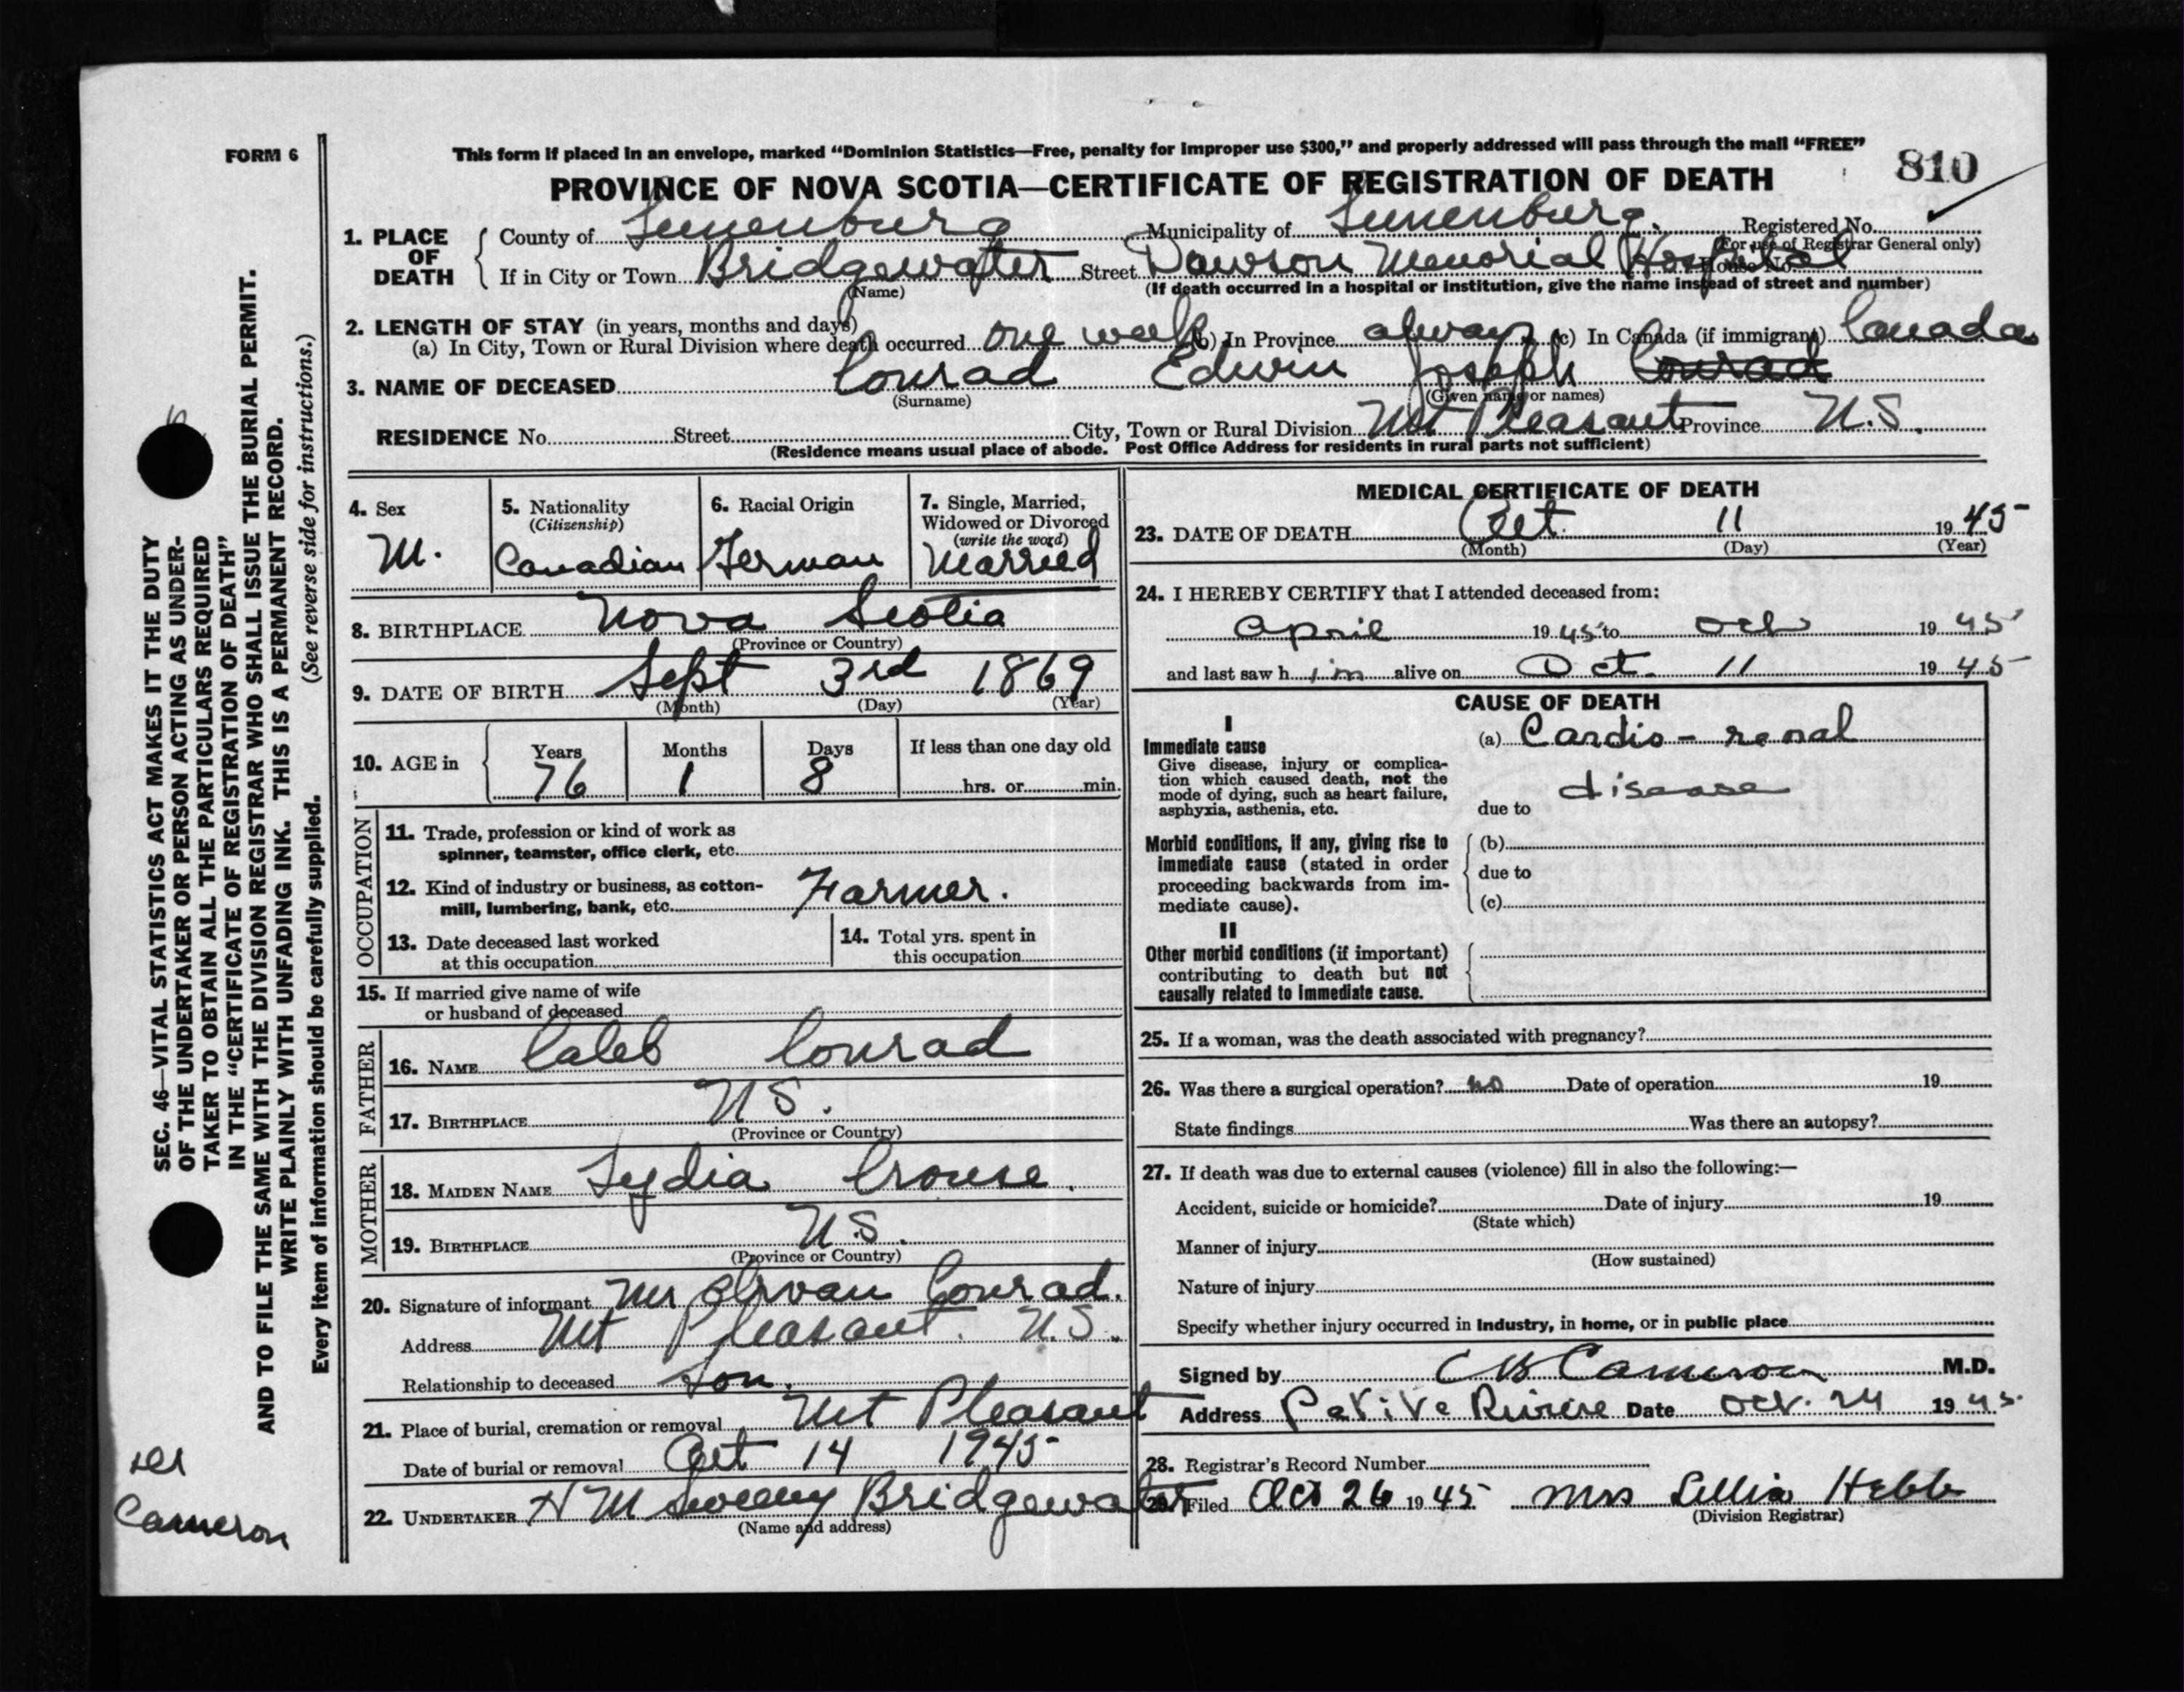 FORM 6
This form if placed in an envelope, marked “Dominion Statistics—Free, penalty for improper use $300,” and properly addressed will pass through the mail “FREE”
810
PROVINCE OF NOVA SCOTIA—CERTIFICATE OF REGISTRATION OF DEATH
1. PLACE OF DEATH
County of Lunenburg Municipality of Lunenburg. Registered No.
(For use of Registrar General only)
If in City or Town Bridgewater Street Dawson Memorial Hospital House No.
(Name) (If death occurred in a hospital or institution, give the name instead of street and number)
2. LENGTH OF STAY (in years, months and days)
(a) In City, Town or Rural Division where death occurred one week (b) In Province always (c) In Canada (if immigrant) Canada
3. NAME OF DECEASED Conrad Edwin Joseph Conrad
(Surname) (Given name or names)
RESIDENCE No. Street City, Town or Rural Division Mt Pleasant Province N.S.
(Residence means usual place of abode. Post Office Address for residents in rural parts not sufficient)
4. Sex
M.
5. Nationality
(Citizenship)
Canadian
6. Racial Origin
German
7. Single, Married,
Widowed or Divorced
(write the word)
Married
8. BIRTHPLACE Nova Scotia
(Province or Country)
9. DATE OF BIRTH Sept 3rd 1869
(Month) (Day) (Year)
10. AGE in
Years Months Days If less than one day old
76 1 8 hrs. or min.
OCCUPATION
11. Trade, profession or kind of work as
spinner, teamster, office clerk, etc.
12. Kind of industry or business, as cotton-
mill, lumbering, bank, etc. Farmer.
13. Date deceased last worked
at this occupation
14. Total yrs. spent in
this occupation
15. If married give name of wife
or husband of deceased
FATHER
16. NAME Caleb Conrad
17. BIRTHPLACE N.S.
(Province or Country)
MOTHER
18. MAIDEN NAME Lydia Crouse.
19. BIRTHPLACE N.S.
(Province or Country)
20. Signature of informant Mr Conrad.
Address Mt Pleasant. N.S.
Relationship to deceased Son.
21. Place of burial, cremation or removal Mt Pleasant
Date of burial or removal Oct 14 1945
22. UNDERTAKER H M Sweeny Bridgewater
(Name and address)
MEDICAL CERTIFICATE OF DEATH
23. DATE OF DEATH Oct. 11 1945
(Month) (Day) (Year)
24. I HEREBY CERTIFY that I attended deceased from:
April 1945 to Oct 1945
and last saw him alive on Oct. 11 1945
CAUSE OF DEATH
I
Immediate cause
Give disease, injury or complica-
tion which caused death, not the
mode of dying, such as heart failure,
asphyxia, asthenia, etc.
(a) Cardio-renal
disease
due to
Morbid conditions, if any, giving rise to
immediate cause (stated in order
proceeding backwards from im-
mediate cause).
(b)
due to
(c)
II
Other morbid conditions (if important)
contributing to death but not
causally related to immediate cause.
25. If a woman, was the death associated with pregnancy?
26. Was there a surgical operation? no Date of operation 19
State findings Was there an autopsy?
27. If death was due to external causes (violence) fill in also the following:—
Accident, suicide or homicide? Date of injury 19
(State which)
Manner of injury
(How sustained)
Nature of injury
Specify whether injury occurred in industry, in home, or in public place
Signed by Cameron M.D.
Address Petite Riviere Date Oct. 24 1945.
28. Registrar's Record Number
29. Filed Oct 26 1945 Mrs Lillia Hebb
(Division Registrar)
SEC. 46—VITAL STATISTICS ACT MAKES IT THE DUTY
OF THE UNDERTAKER OR PERSON ACTING AS UNDER-
TAKER TO OBTAIN ALL THE PARTICULARS REQUIRED
IN THE “CERTIFICATE OF REGISTRATION OF DEATH”
AND TO FILE THE SAME WITH THE DIVISION REGISTRAR WHO SHALL ISSUE THE BURIAL PERMIT.
WRITE PLAINLY WITH UNFADING INK. THIS IS A PERMANENT RECORD.
Every item of information should be carefully supplied. (See reverse side for instructions.)
Cameron